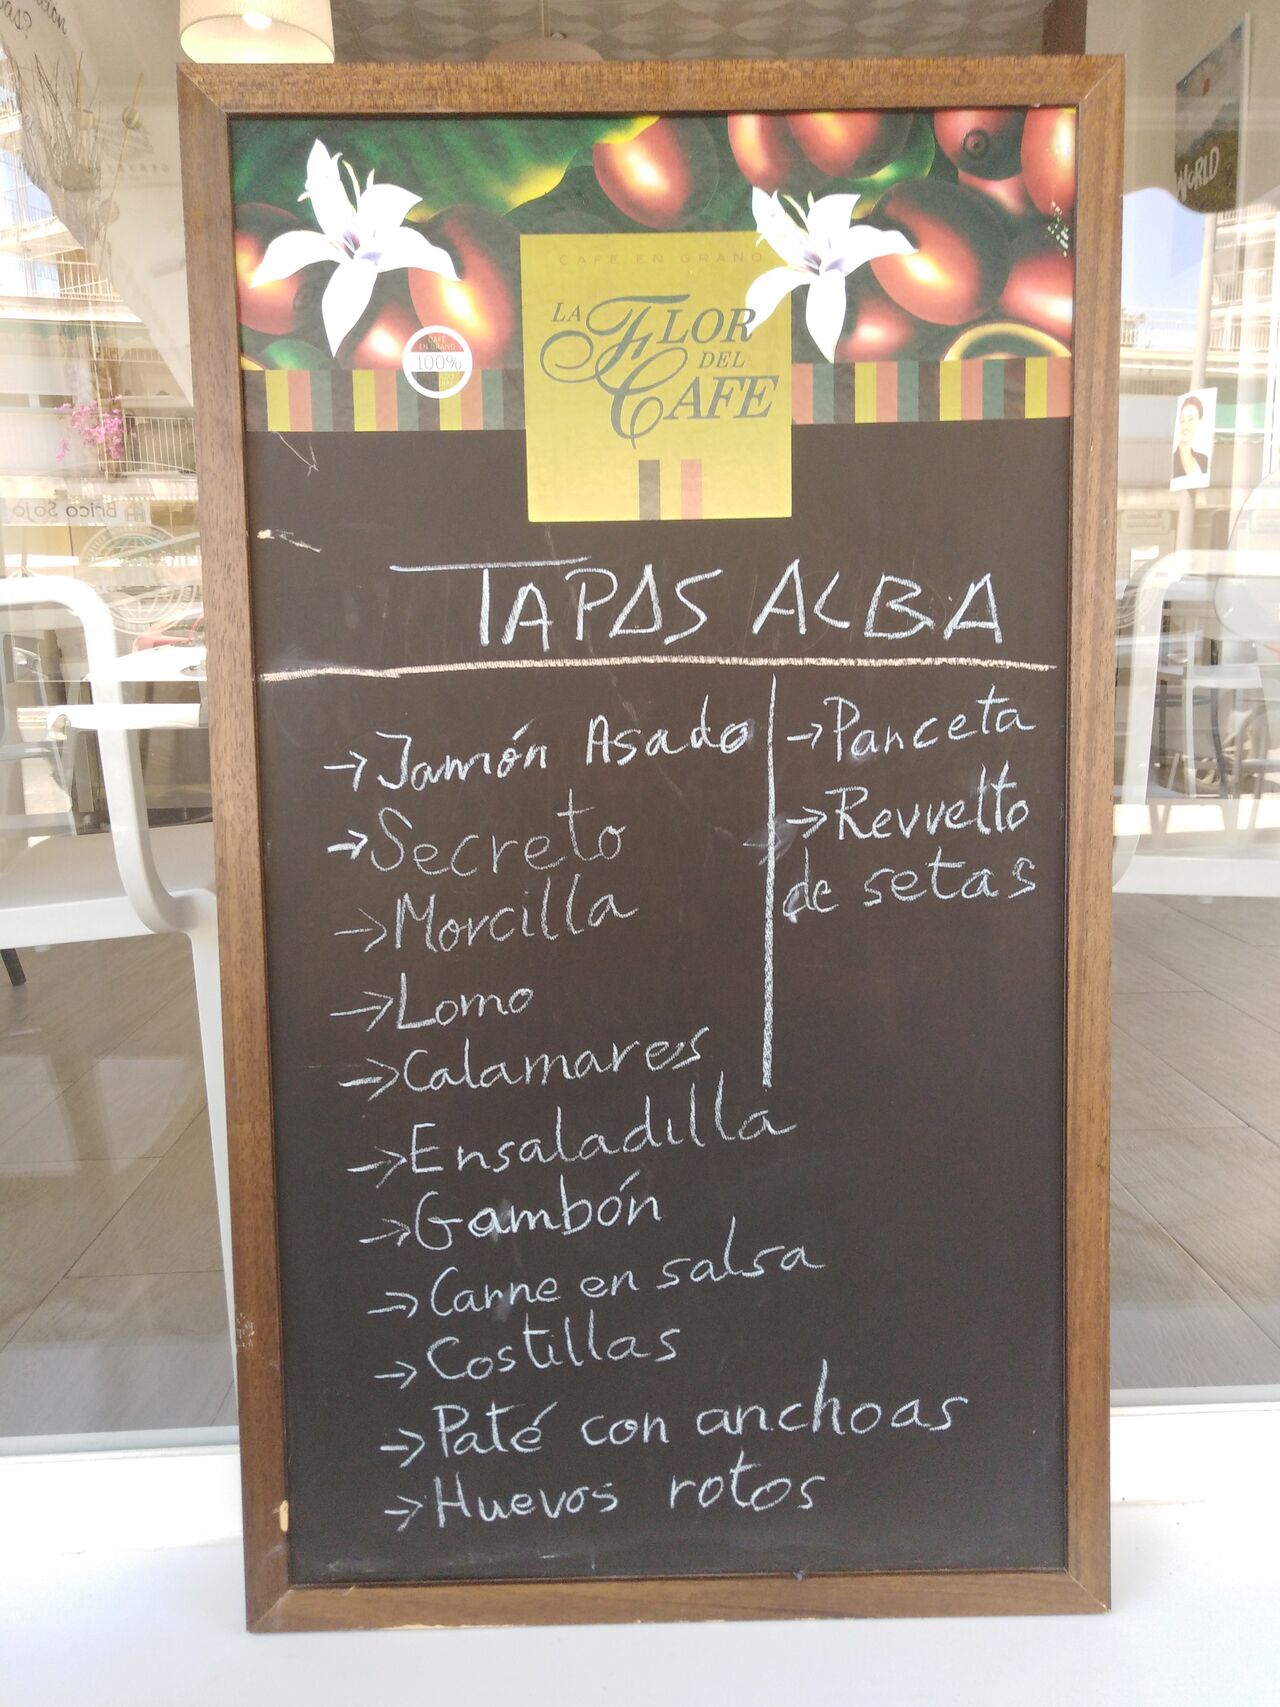 CAFE EN GRANO
LA FLOR
DEL
CAFE
CAFÉ
EN GRANO
100%
TAPAS ALBA
→Jamón Asado
→Secreto
→Morcilla
→Lomo
→Calamares
→Ensaladilla
→Gambón
→Carne en salsa
→Costillas
→Paté con anchoas
→Huevos rotos
→Panceta
→Revvelto
de setas
WORLD
Brico Sojo